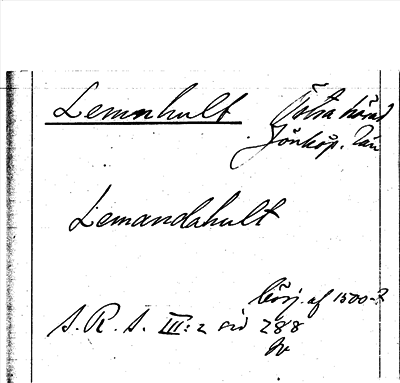 Lemnhult Östra härad
Jönköp. län
Lemandahult
börj. af 1500-t
S. R. S. III:2 sid 288